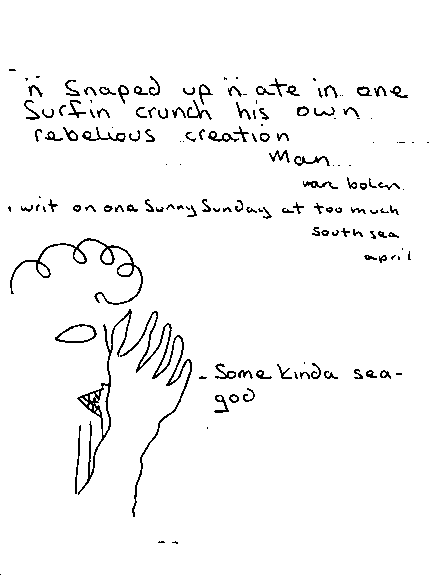 n snaped up n ate in one
Surfin crunch his own
rebelious creation
Man...
marc bolan.
writ on one Sunny Sunday at too much
South sea
april
- Some kinda sea-
god